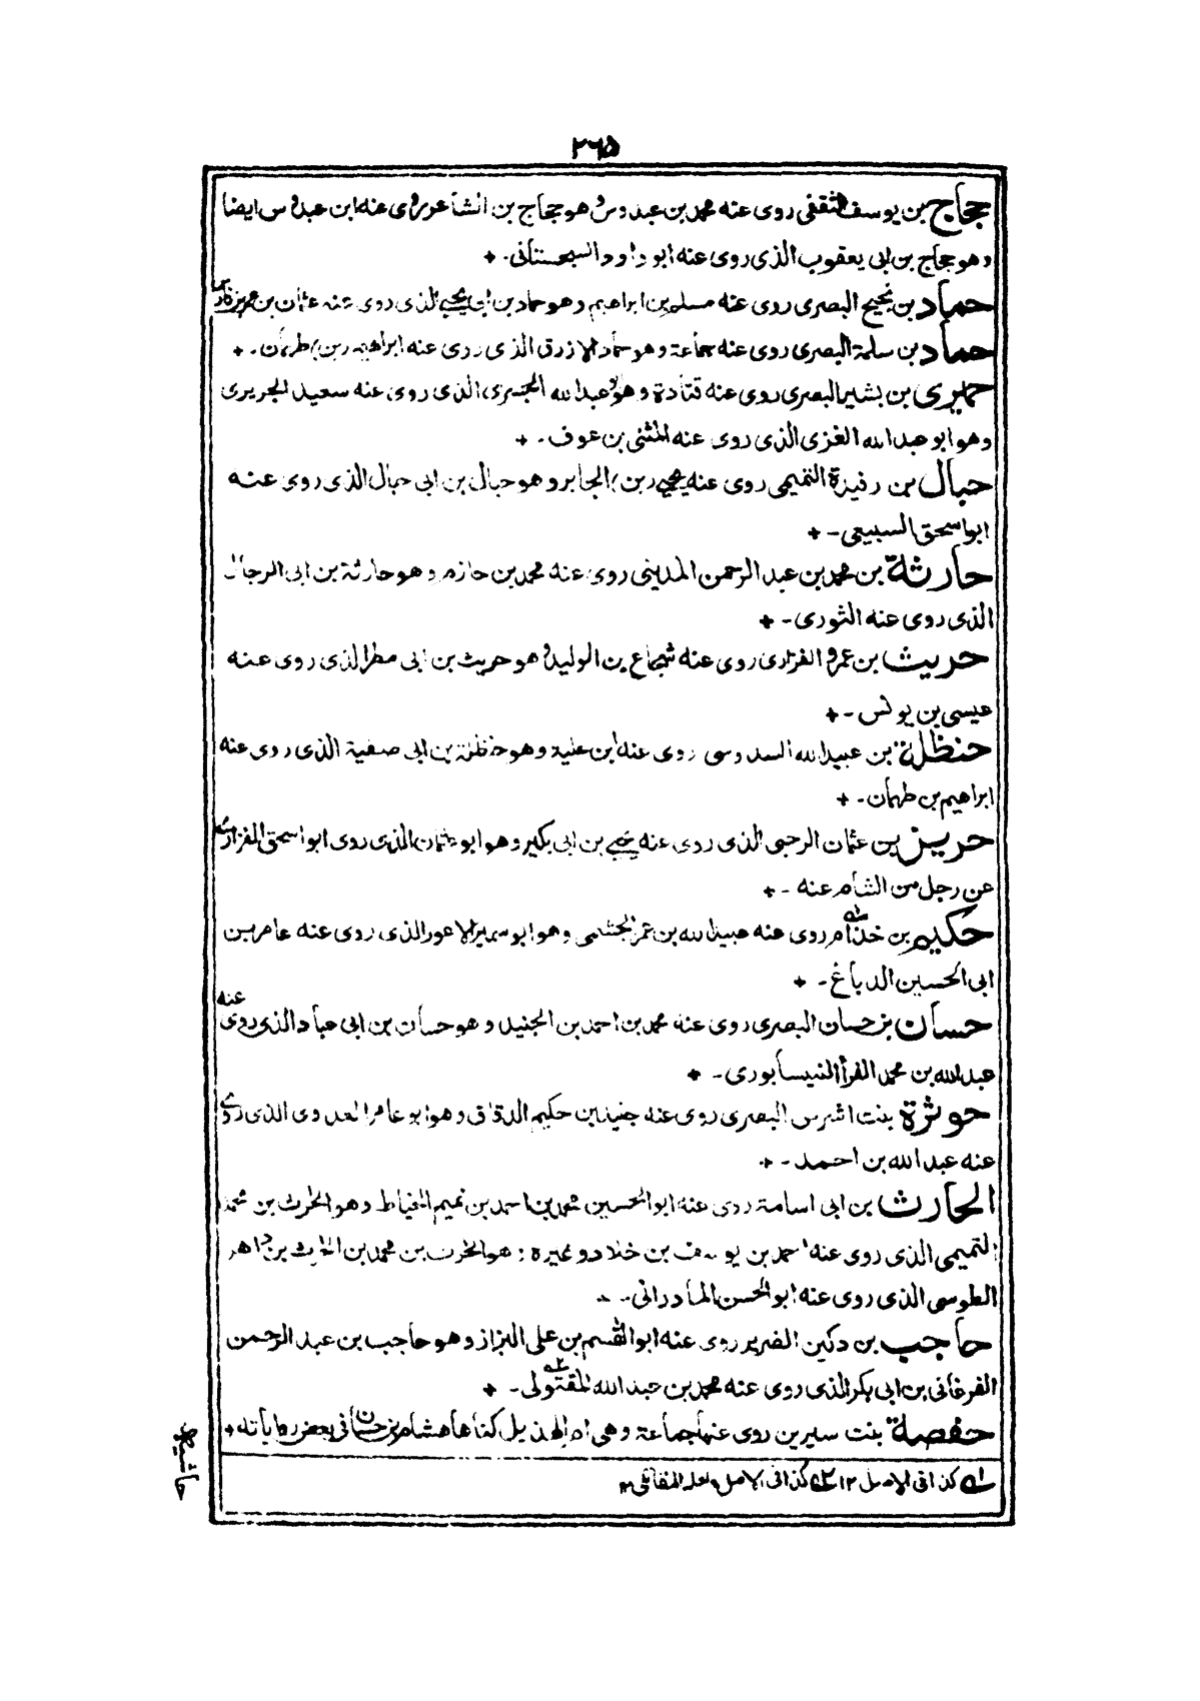 ٢٦٥
حجاج بن يوسف الثقفى روى عنه محمد بن عبدوس وهو حجاج بن الشاعر روى عنه ابن عبدوس ايضا
وهو حجاج بن ابى يعقوب الذى روى عنه ابو داود السجستانى ـ +
حماد بن نجيح البصرى روى عنه مسلم بن ابراهيم وهو حماد بن ابى يحيى الذى روى عنه عثمان بن عمر بن فارس
حماد بن سلمة البصرى روى عنه جماعة وهو حماد الازرق الذى روى عنه ابراهيم (بن) طهمان ـ +
حميرى بن بشير البصرى روى عنه قتادة وهو ابو عبدالله الجسرى الذى روى عنه سعيد الجريرى
وهو ابو عبدالله الغزى الذى روى عنه المثنى بن عوف ـ +
حبال بن رفيدة التميمى روى عنه يحيى (بن) الجابر وهو حبال بن ابى حبال الذى روى عنه
ابو اسحق السبيعى ـ +
حارثة بن محمد بن عبد الرحمن المدينى روى عنه محمد بن حازم وهو حارثة بن ابى الرجال
الذى روى عنه الثورى ـ +
حريث بن عمرو الفزارى روى عنه شجاع بن الوليد وهو حريث بن ابى مطر الذى روى عنه
عيسى بن يونس ـ +
حنظلة بن عبيدالله السدوسى روى عنه ابن علية وهو حنظلة بن ابى صفية الذى روى عنه
ابراهيم بن طهمان ـ +
حريز بن عثمان الرحبى الذى روى عنه يحيى بن ابى بكير وهو ابو عثمان الذى روى ابو اسحق الفزارى
عن رجل من الشام عنه ـ +
حكيم بن خذام له روى عنه عبيدالله بن عمر الجشمى وهو ابو سمير الاعور الذى روى عنه عامر بن
ابى الحسين الدباغ ـ +
حسان بن حسان البصرى روى عنه محمد بن احمد بن الجنيد وهو حسان بن ابى عباد الذى روى عنه
عبدالله بن محمد الفرأ النيسابورى ـ +
حوثرة بنت اشرس البصرى روى عنه جنيد بن حكيم الدقاق وهو ابو عامر العدوى الذى روى
عنه عبد الله بن احمد ـ +
الحارث بن ابى اسامة روى عنه ابو الحسين محمد بن احمد بن تميم الخياط وهو الحرث بن محمد
التميمى الذى روى عنه احمد بن يوسف بن خلاد وغيره وهو الحرث بن محمد بن الحارث بن داهر
الطوسى الذى روى عنه ابو الحسن المادرانى ـ
حاجب بن دكين الضرير روى عنه ابو القسم بن على البزاز وهو حاجب بن عبد الرحمن
الفرغانى بن ابى بكر الذى روى عنه محمد بن عبدالله المقتولى ـ +
حفصة بنت سيرين روى عنها جماعة وهى ام الهذيل كناها هشام بن حسان فى بعض رواياته +
له كذا فى الاصل ١٢ كذا فى الاصل ولعله المقانلى ١٢
حاشيه